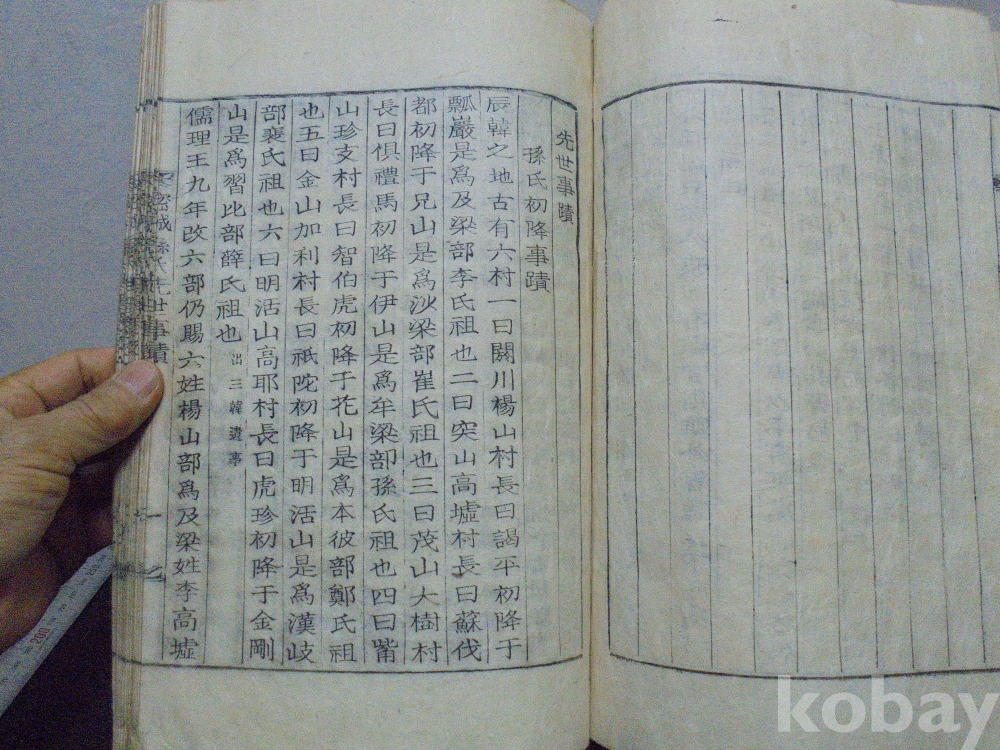 先世事蹟
孫氏初降事蹟
辰韓之地古有六村一曰閼川楊山村長曰謁平初降于
瓢巖是爲及梁部李氏祖也二曰突山高墟村長曰蘇伐
都初降于兄山是爲沙梁部崔氏祖也三曰茂山大樹村
長曰俱禮馬初降于伊山是爲牟梁部孫氏祖也四曰觜
山珍支村長曰智伯虎初降于花山是爲本彼部鄭氏祖
也五曰金山加利村長曰祇陀初降于明活山是爲漢岐
部裵氏祖也六曰明活山高耶村長曰虎珍初降于金剛
山是爲習比部薛氏祖也 出三韓遺事
儒理王九年改六部仍賜六姓楊山部爲及梁姓李高墟
密城孫氏先世事蹟 一
kobay